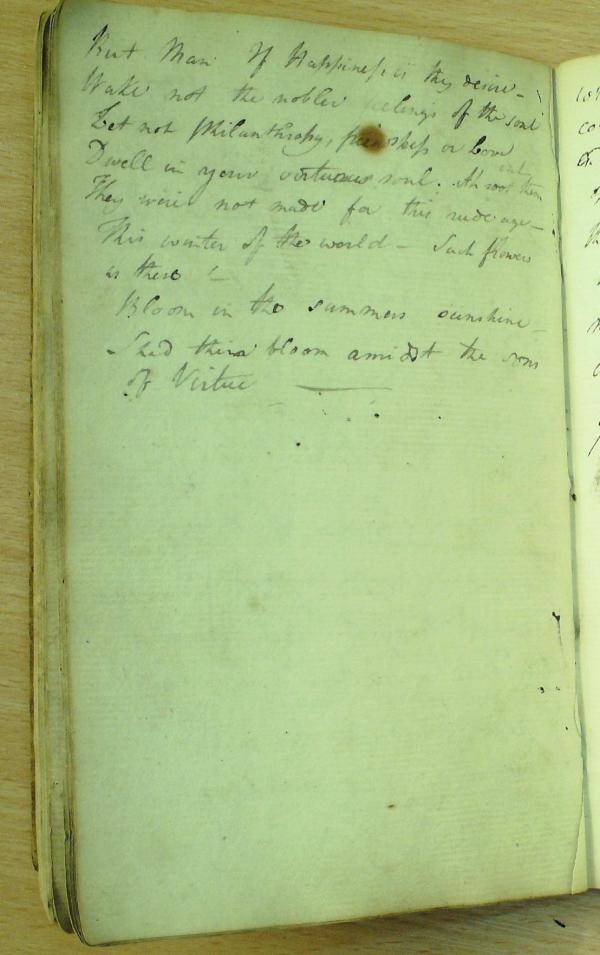 But Man If Happiness is thy desire -
Wake not the nobler feelings of the soul
Let not philanthropy, friendship or Love
Dwell in your virtuous soul. Ah root them
out
They were not made for this rude age -
This winter of the world - Such flowers
as these! -
Bloom in the summers sunshine -
Shed their bloom amidst the sons
of Virtue